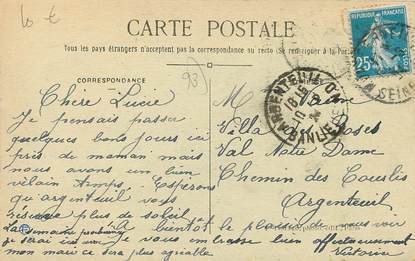 10 €
CARTE POSTALE
Tous les pays étrangers n'acceptent pas la correspondance au recto (Se renseigner à la Poste)
REPUBLIQUE FRANÇAISE
25
POSTES
ARGENTEUIL
18 15
10
SEINE
CORRESPONDANCE
Chère Lucie
Je pensais passer
quelques bons jours ici
près de maman mais
nous avons un bien
vilain temps. Espérons
qu'argenteuil vous
réserve plus de soleil.
A bientôt le plaisir de vous voir
je vous embrasse bien affectueusement
Victorine
La semaine prochaine
je serai
mon mari ce sera plus agréable
M
Villa Roses
Val Notre Dame
Chemin des Courlis
Argenteuil